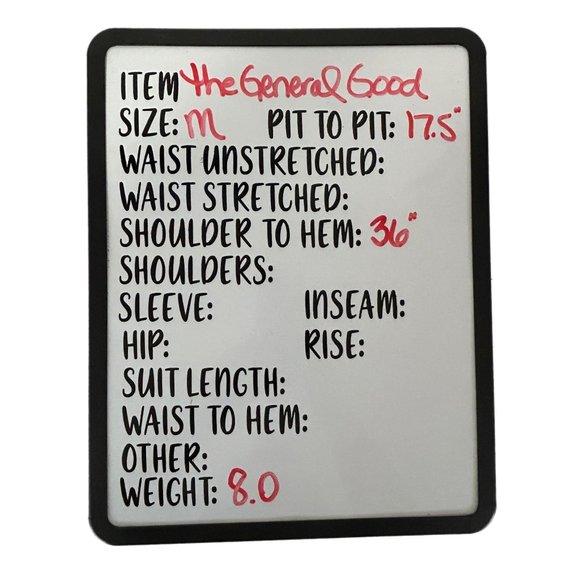 ITEM the General Good
SIZE: M PIT TO PIT: 17.5"
WAIST UNSTRETCHED:
WAIST STRETCHED:
SHOULDER TO HEM: 36"
SHOULDERS:
SLEEVE: INSEAM:
HIP: RISE:
SUIT LENGTH:
WAIST TO HEM:
OTHER:
WEIGHT: 8.0